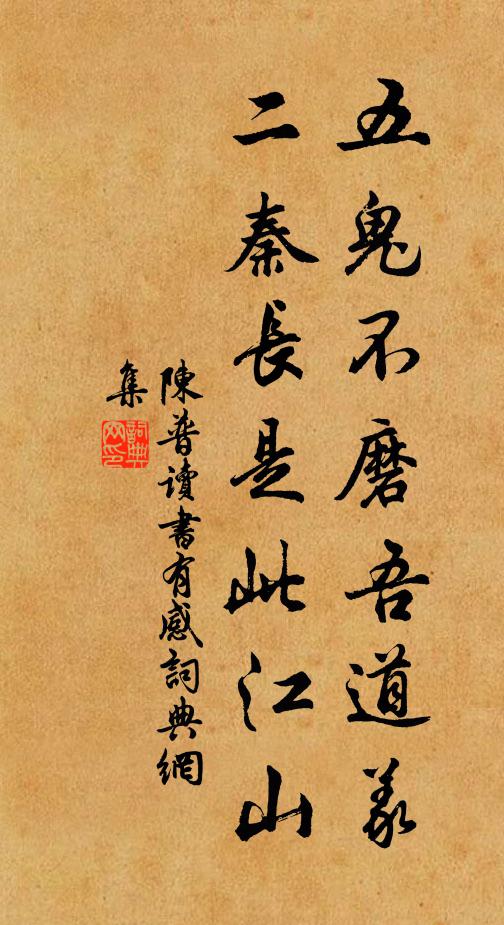 五鬼不磨吾道义
二秦長是此江山
陳普讀書有感詞典網
集
詞典网印